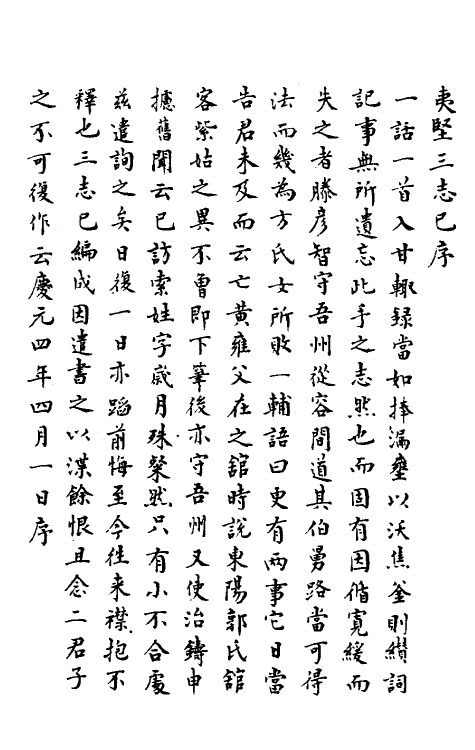 夷堅三志己序
一話一首入甘輒録當如捧漏甕以沃焦釜則纉詞
記事無所遺忘此手之志然也而固有因循寛緩而
失之者滕彦智守吾州從容間道其伯舅路當可得
法而幾為方氏女所敗一輔語曰更有兩事它日當
告君未及而云亡黄雍父在之舘時説東陽郭氏舘
客紫姑之異不曾即下筆後亦守吾州又使治鑄申
攄舊聞云已訪索姓字歳月殊粲然只有小不合處
兹遣詢之矣日復一日亦蹈前悔至今徃来襟抱不
釋也三志己編成因遣書之以渫餘恨且念二君子
之不可復作云慶元四年四月一日序